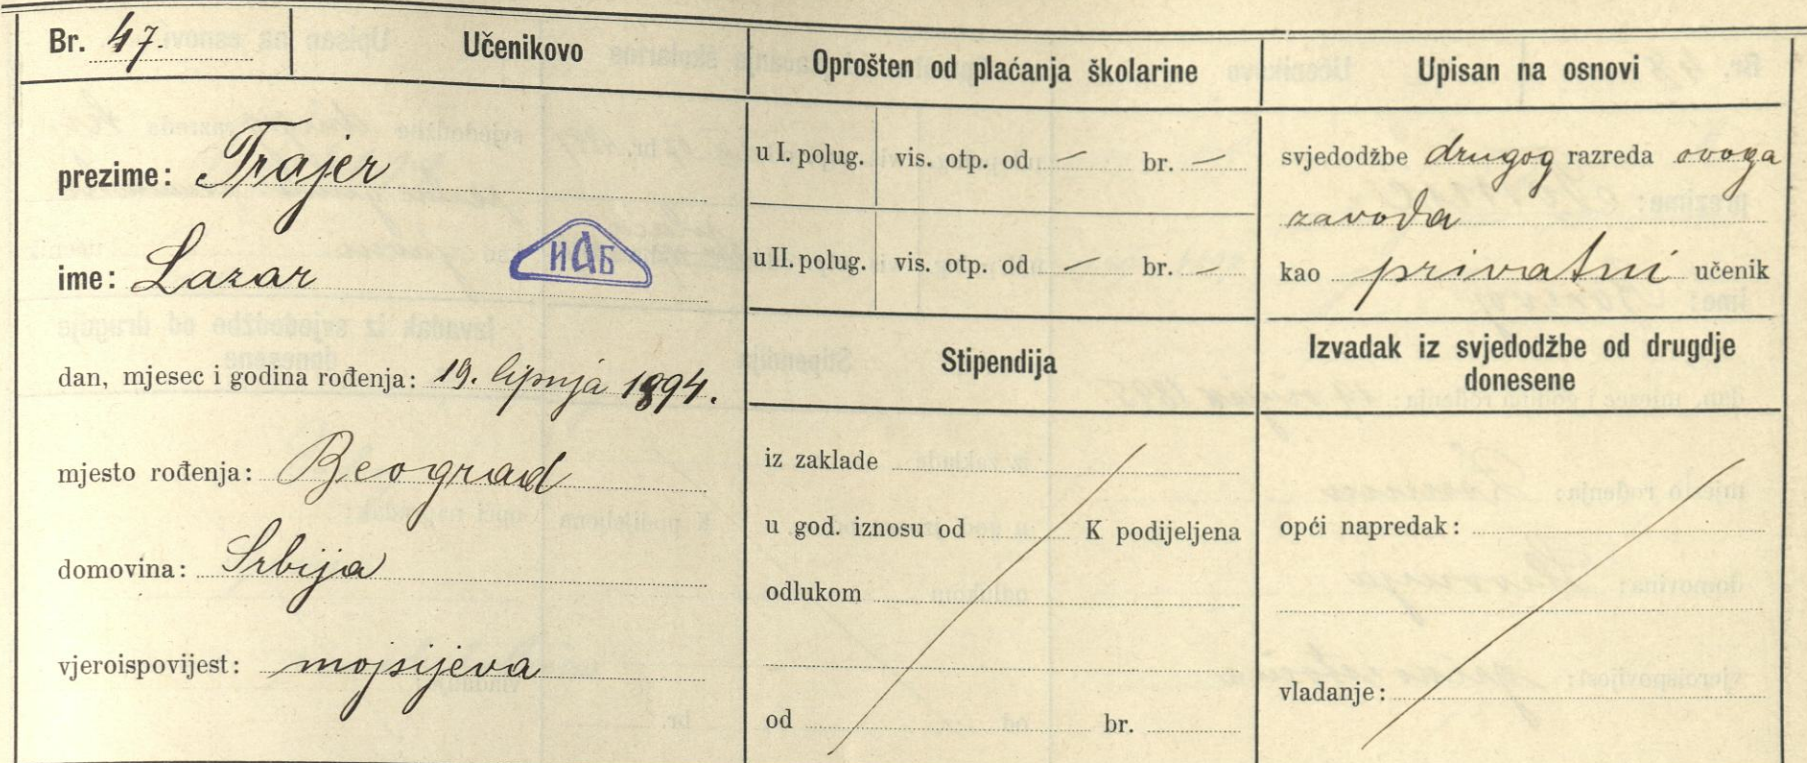 Br. 47.
Učenikovo
prezime: Trajer
ime: Lazar
ИАБ
dan, mjesec i godina rođenja: 19. lipnja 1894.
mjesto rođenja: Beograd
domovina: Srbija
vjeroispovijest: mojsijeva
Oprošten od plaćanja školarine
u I. polug. vis. otp. od — br. —
u II. polug. vis. otp. od — br. —
Stipendija
iz zaklade
u god. iznosu od K podijeljena
odlukom
od br.
Upisan na osnovi
svjedodžbe drugog razreda ovoga
zavoda
kao privatni učenik
Izvadak iz svjedodžbe od drugdje
donesene
opći napredak:
vladanje: